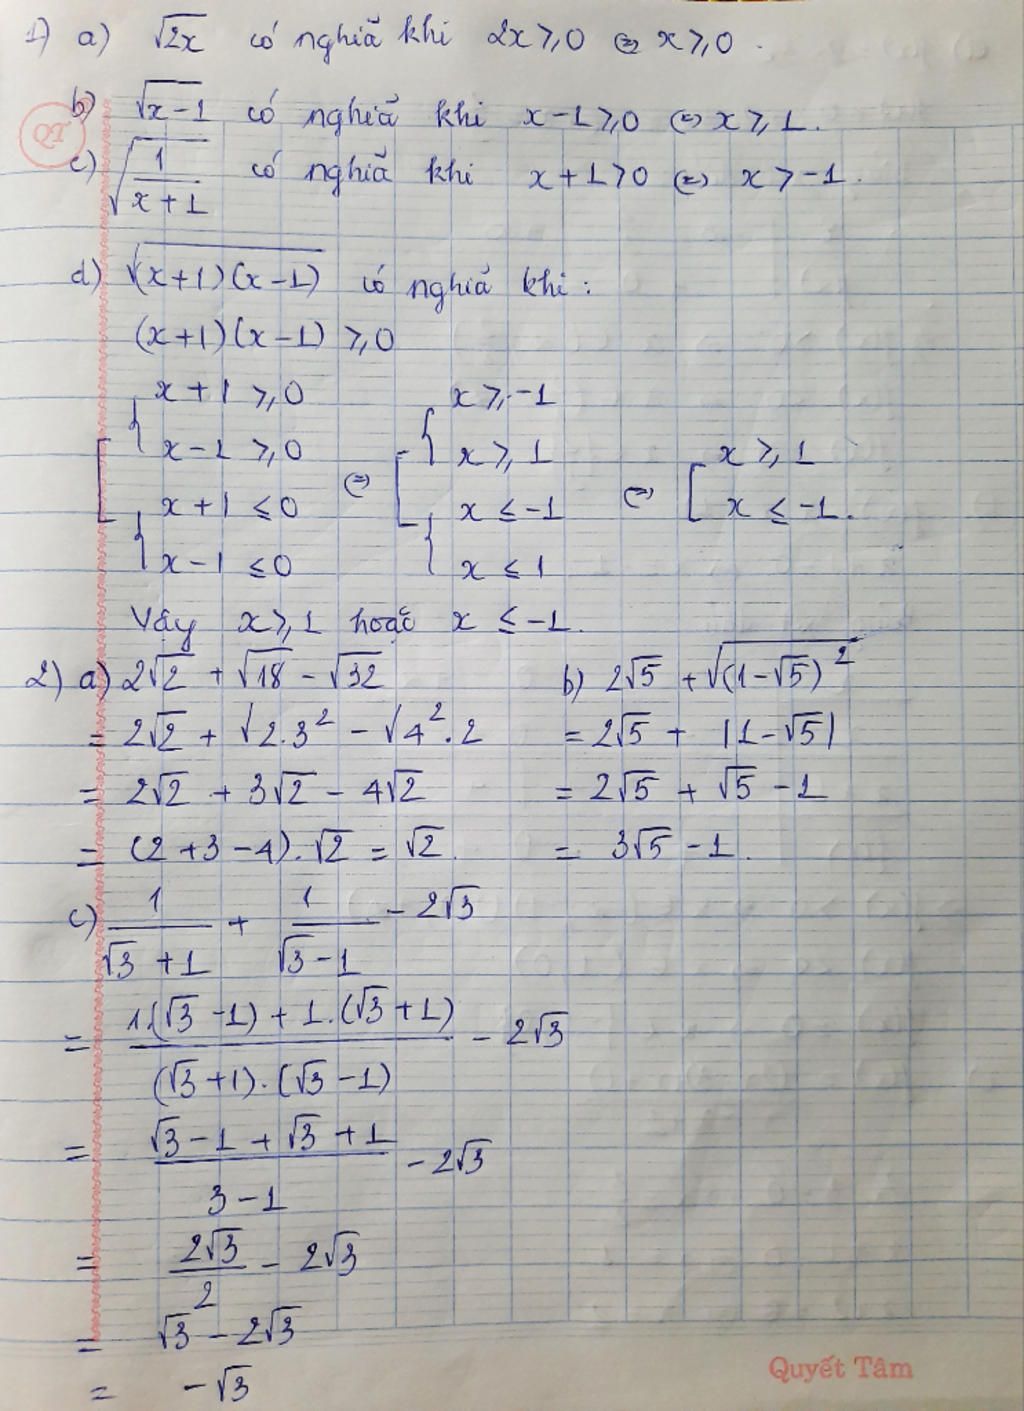 1) a) √2x có nghĩa khi 2x ≥ 0 ⇔ x ≥ 0.
b) √(x-1) có nghĩa khi x-1 ≥ 0 ⇔ x ≥ 1.
c) √(1/(x+1)) có nghĩa khi x+1 > 0 ⇔ x > -1.
d) √((x+1)(x-1)) có nghĩa khi:
(x+1)(x-1) ≥ 0
[ { x+1 ≥ 0 ⇔ [ { x ≥ -1
x-1 ≥ 0 x ≥ 1 ⇔ [ x ≥ 1
{ x+1 ≤ 0 { x ≤ -1 x ≤ -1.
x-1 ≤ 0 x ≤ 1
Vậy x ≥ 1 hoặc x ≤ -1.
2) a) 2√2 + √18 - √32
= 2√2 + √2.3² - √4².2
= 2√2 + 3√2 - 4√2
= (2+3-4).√2 = √2.
b) 2√5 + √(1-√5)²
= 2√5 + |1-√5|
= 2√5 + √5 - 1
= 3√5 - 1.
c) 1/(√3+1) + 1/(√3-1) - 2√3
= (1.(√3-1) + 1.(√3+1))/((√3+1).(√3-1)) - 2√3
= (√3-1+√3+1)/(3-1) - 2√3
= 2√3/2 - 2√3
= √3 - 2√3
= -√3
Quyết Tâm